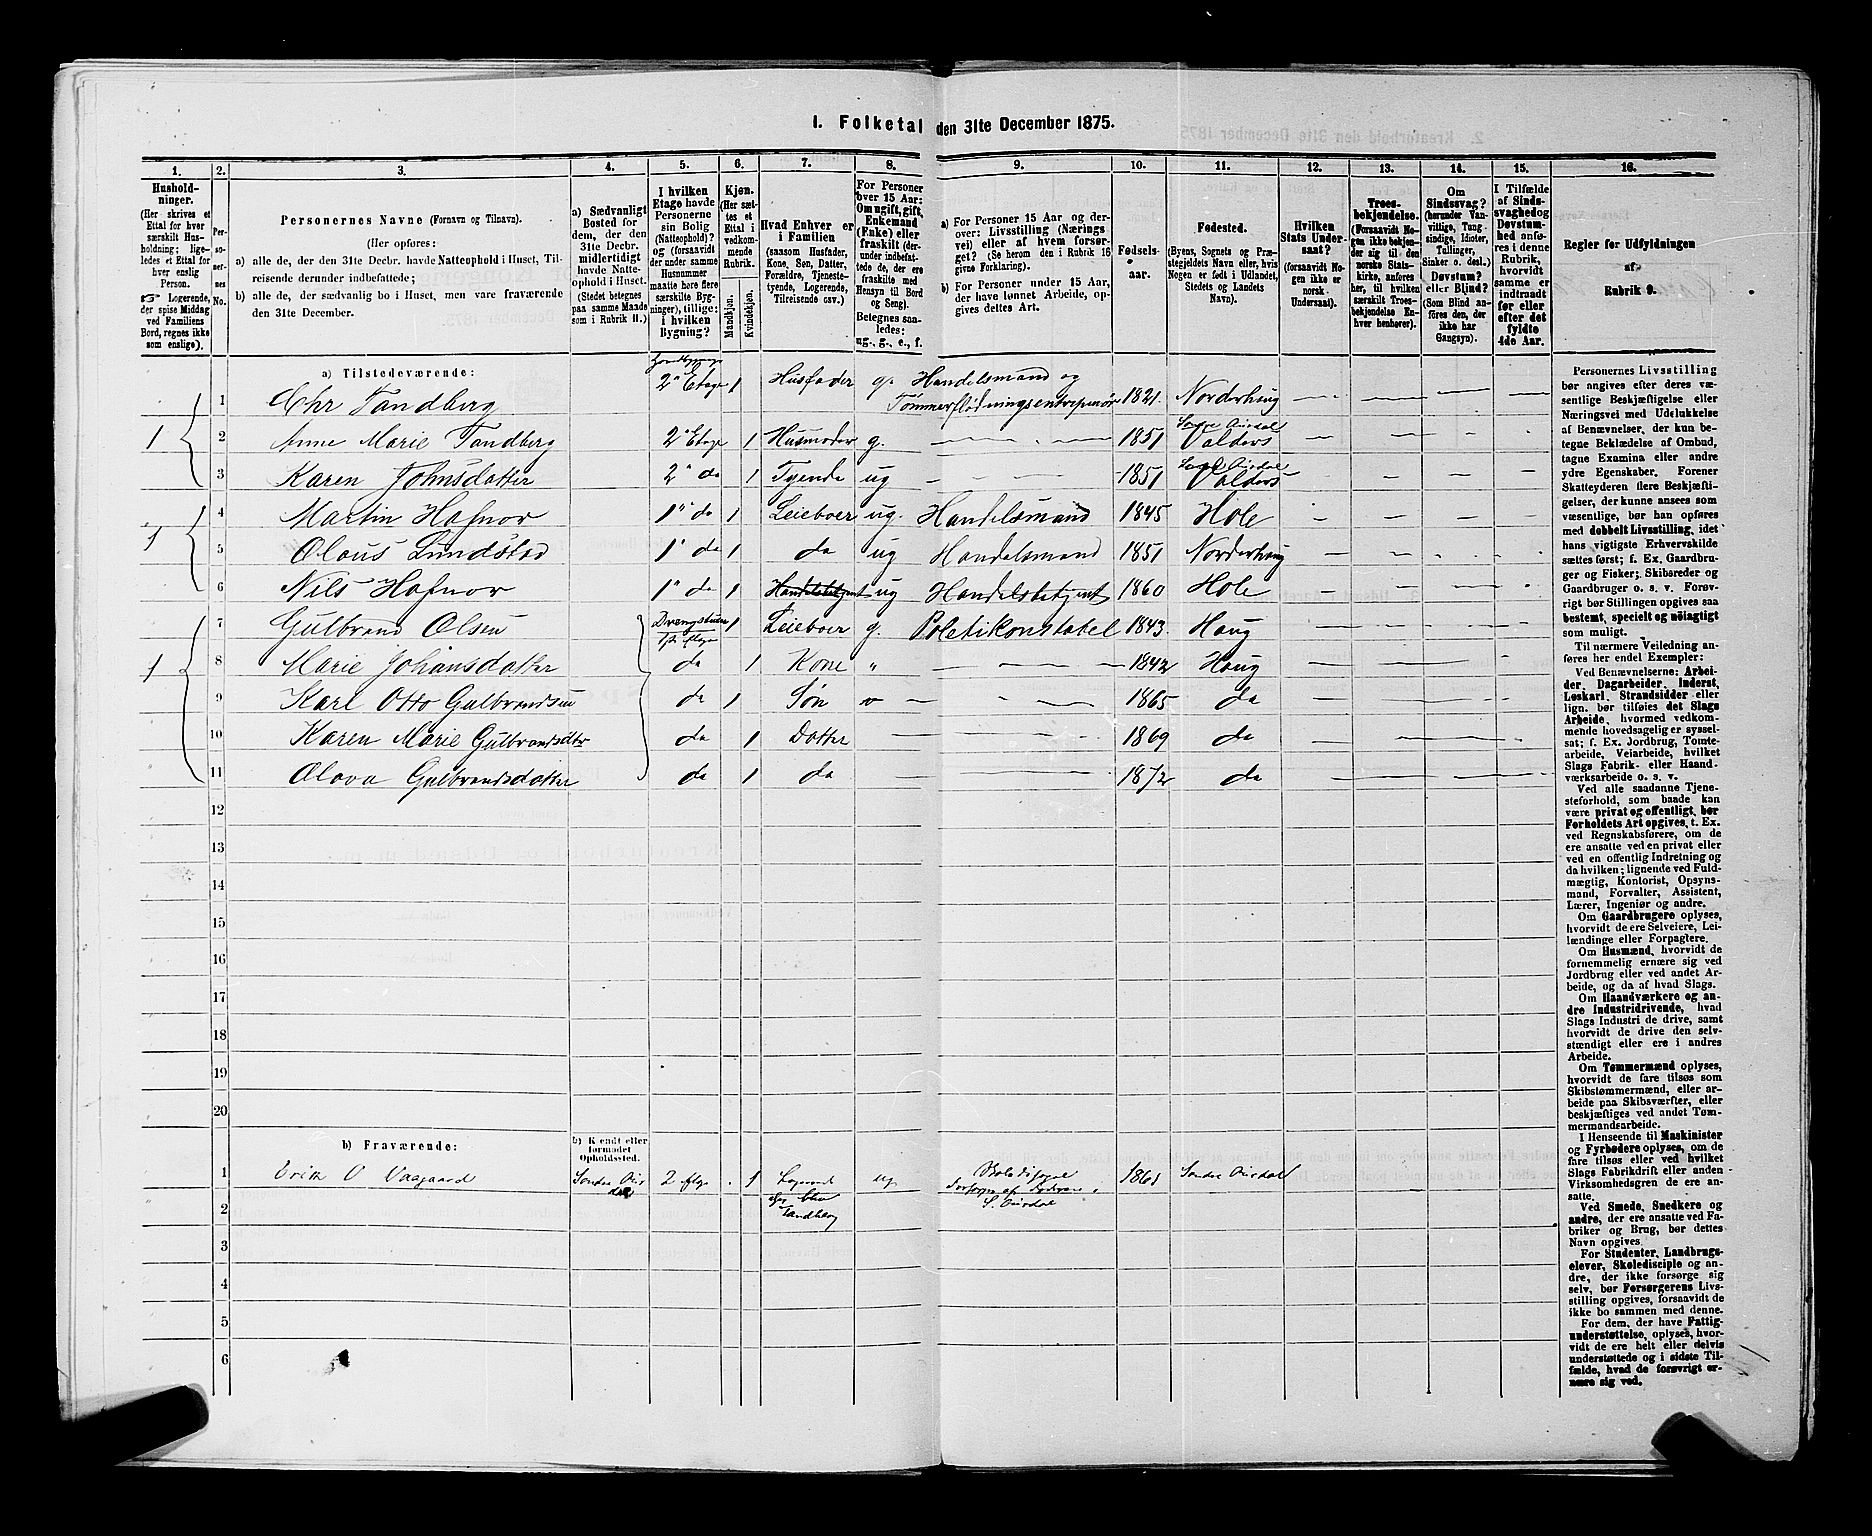 1. Folketal den 31te December 1875.
1. 2. 3. 4. 5. 6. 7. 8. 9. 10. 11. 12. 13. 14. 15. 16.
Hushold-
ninger.
(Her skrives et
Ettal for hver
særskilt Hus-
holdning; lige-
ledes et Ettal for
hver enslig
Person.
☞ Logerende,
der spise Middag
ved Familiens
Bord, regnes ikke
som enslige).
Per-
so-
ner-
nes
No.
Personernes Navne (Fornavn og Tilnavn).
(Her opføres:
a) alle de, der den 31te Decbr. havde Natteophold i Huset, Til-
reisende derunder indbefattede;
b) alle de, der sædvanlig bo i Huset, men vare fraværende
den 31te December.
a) Sædvanligt
Bosted for
dem, der den
31te Decbr.
midlertidigt
havde Natte-
ophold i Huset.
(Stedet betegnes
paa samme Maade
som i Rubrik 11.)
I hvilken
Etage havde
Personerne
sin Bolig
(Natteophold)?
og (forsaavidt
der under samme
Husnummer
maatte høre flere
særskilte Byg-
ninger), tillige:
i hvilken
Bygning?
Kjøn.
(Her sæt-
tes et
Ettal i
vedkom-
mende
Rubrik.
Mandkjøn.
Kvindekjøn.
Hvad Enhver er
i Familien
(saasom Husfader,
Kone, Søn, Datter,
Forældre, Tjeneste-
tyende, Logerende,
Tilreisende osv.)
For Personer
over 15 Aar:
Om ugift, gift,
Enkemand
(Enke) eller
fraskilt (der-
under indbefat-
tede de, der ere
fraskilte med
Hensyn til Bord
og Seng).
Betegnes saa-
ledes:
ug., g., e., f.
a) For Personer 15 Aar og der-
over: Livsstilling (Nærings
vei) eller af hvem forsør-
get? (Se herom den i Rubrik 16
givne Forklaring).
b) For Personer under 15 Aar,
der have lønnet Arbeide, op-
gives dettes Art.
Fødsels-
aar.
Fødested.
(Byens, Sognets og Præ-
stegjeldets Navn eller, hvis
Nogen er født i Udlandet,
Stedets og Landets
Navn).
Hvilken
Stats Under-
saat?
(forsaavidt No-
gen ikke er
norsk
Undersaat).
Troes-
bekjendelse.
(Forsaavidt No-
gen ikke bekjen-
der sig til den
norske Stats-
kirke, anføres
her, til hvilken
særskilt Troes-
bekjendelse En-
hver henhører).
Om
Sindssvag?
(herunder Van-
vittige, Tung-
sindige, Idioter,
Tullinger,
Sinker o. desl.).
Døvstum?
eller Blind?
(Som Blind an-
føres den, der
ikke har
Gangsyn).
I Tilfælde
af Sinds-
svaghed og
Døvstum-
hed anfø-
res i denne
Rubrik,
hvorvidt
samme er
indtraadt
før eller
efter det
fyldte
4de Aar.
Regler for Udfyldningen
af
Rubrik 9.
a) Tilstedeværende:
1 1 Chr Tandberg 2 Etage 1 Husfader g. Handelsmand og
Tømmerflødningsentreprenør 1821. Norderhoug
2 Anne Marie Tandberg 2 Etage 1 Husmoder g. 1851 Søndre Aurdal
Valders
3 Karen Johnsdatter 2 " da 1 Tyende ug 1851 Søndre Aurdal
Valders
1 4 Martin Hafnor 1 " da 1 Leieboer ug. Handelsmand 1845 Hole
5 Olaus Lundstad 1 " da 1 da ug Handelsmand 1851 Norderhoug
6 Nils Hafnor 1 " da 1 Handelsbetjent ug Handelsbetjent 1860 Hole
1 7 Gulbrand Olsen Drengstuen 1 Leieboer g. Politikonstabel 1843. Houg
8 Marie Johansdatter da 1 Kone " 1842 Houg
9 Karl Otto Gulbrandsen da 1 Søn 1865 da
10 Karen Marie Gulbrandsdtr da 1 Datter 1869 da
11 Olava Gulbrandsdatter da 1 da 1872 da
12
13
14
15
16
17
18
19
20
b) Fraværende:
b) Kjendt eller
formodet
Opholdssted.
1 Søndre Aur
dal 2 Etge 1 ug 1861 Søndre Aurdal
2 Tandberg S. Aurdal
3
4
5
6
Personernes Livsstilling
bør angives efter deres væ-
sentlige Beskjæftigelse eller
Næringsvei med Udelukkelse
af Benævnelser, der kun be-
tegne Beklædelse af Ombud,
tagne Examina eller andre
ydre Egenskaber. Forener
Skatteyderen flere Beskjæfti-
gelser, der kunne ansees som
væsentlige, bør han opføres
med dobbelt Livsstilling, idet
hans vigtigste Erhvervskilde
sættes først; f. Ex. Gaardbru-
ger og Fisker; Skibsreder og
Gaardbruger o. s. v. Forøv-
rigt bør Stillingen opgives saa
bestemt, specielt og nøiagtigt
som muligt.
Til nærmere Veiledning an-
føres her endel Exempler:
Ved Benævnelserne: Arbei-
der, Dagarbeider, Inderst,
Løskarl, Strandsidder eller
lign. bør tilføies det Slags
Arbeide, hvormed vedkom-
mende hovedsagelig er syssel-
sat; f. Ex. Jordbrug, Tomte-
arbeide, Veiarbeide, hvilket
Slags Fabrik- eller Haand-
værksarbeide o. s. v.
Ved alle saadanne Tjene-
steforhold, som baade kan
være privat og offentligt, bør
Forholdets Art opgives, t. Ex.
ved Regnskabsførere, om de
ere ansatte ved en privat eller
ved en offentlig Indretning og
da hvilken; lignende ved Fuld-
mægtig, Kontorist, Opsyns-
mand, Forvalter, Assistent,
Lærer, Ingeniør og andre.
Om Gaardbrugere oplyses,
hvorvidt de ere Selveiere, Lei-
lændinge eller Forpagtere.
Om Husmænd, hvorvidt de
fornemmelig ernære sig ved
Jordbrug eller ved andet Ar-
beide, og da af hvad Slags.
Om Haandværkere og an-
dre Industridrivende, hvad
Slags Industri de drive, samt
hvorvidt de drive den selv-
stændigt eller ere i andres
Arbeide.
Om Tømmermænd oplyses,
hvorvidt de fare tilsøs som
Skibstømmermænd, eller ar-
beide paa Skibsværfter, eller
beskjæftiges ved andet Tøm-
mermandsarbeide.
I Henseende til Maskinister
og Fyrbødere oplyses, om de
fare tilsøs eller ved hvilket
Slags Fabrikdrift eller anden
Virksomhedsgren de ere an-
satte.
Ved Smede, Snedkere og
andre, der ere ansatte ved Fa-
briker og Brug, bør dettes
Navn opgives.
For Studenter, Landbrugs-
elever, Skoledisciple og an-
dre, der ikke forsørge sig
selv, bør Forsørgerens Livs-
stilling opgives, forsaavidt de
ikke bo sammen med denne.
For dem, der have Fattig-
understøttelse, oplyses, hvor-
vidt de ere helt eller delvis
understøttede og i sidste Til-
fælde, hvad de forøvrigt er-
nære sig ved.